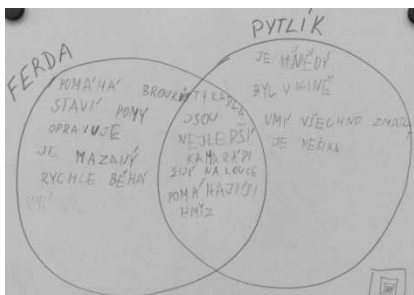 FERDA
POMÁHÁ BROUKŮM
STAVÍ DOMY
OPRAVUJE
JE MAZANÝ
RYCHLE BĚHÁ
UMÍ
TYKADLA
JSOU
NEJLEPŠÍ
KAMARÁDI
ŽIJÍ NA LOUCE
POMÁHAJÍ SI
HMYZ
PYTLÍK
JE HNĚDÝ
BYL V KINĚ
UMÍ VŠECHNO ZMAST
JE NEŠIKA